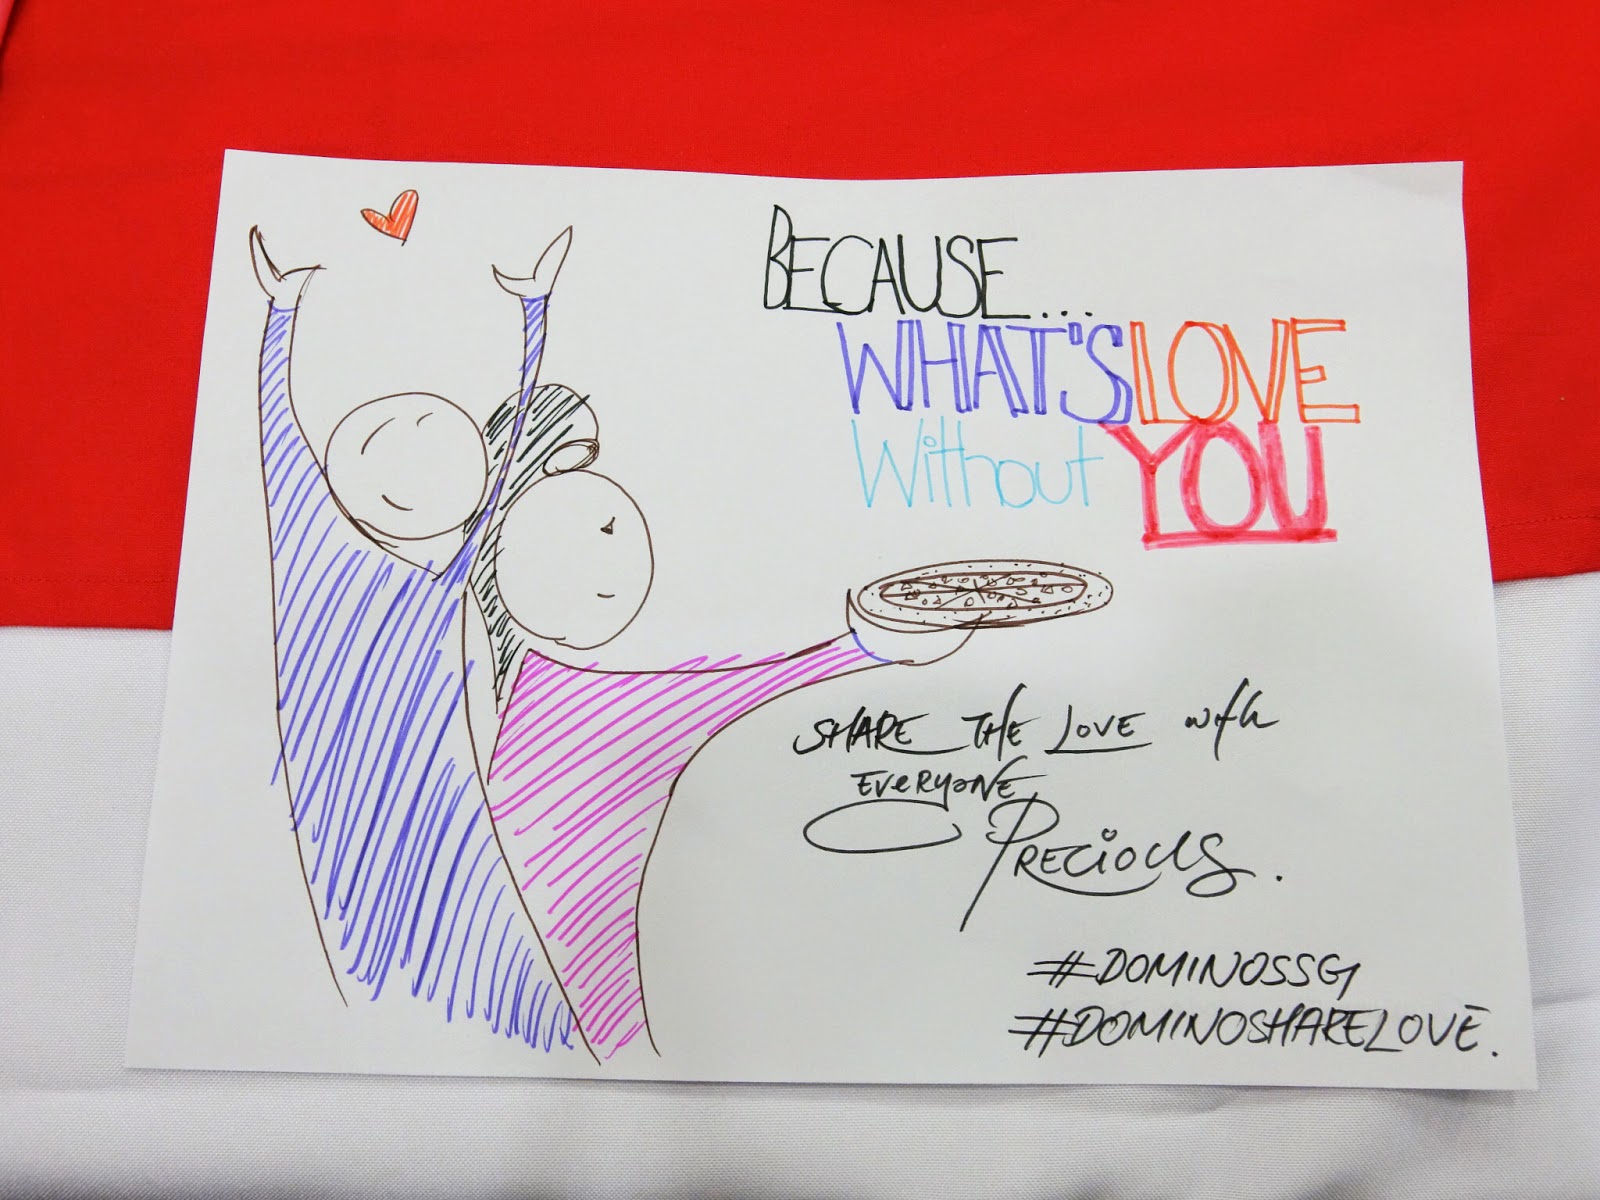 BECAUSE...
WHAT'S LOVE
Without YOU
SHARE THE LOVE with
EVERYONE
PRECIOUS.
#DOMINOSSG
#DOMINOSHARELOVE.